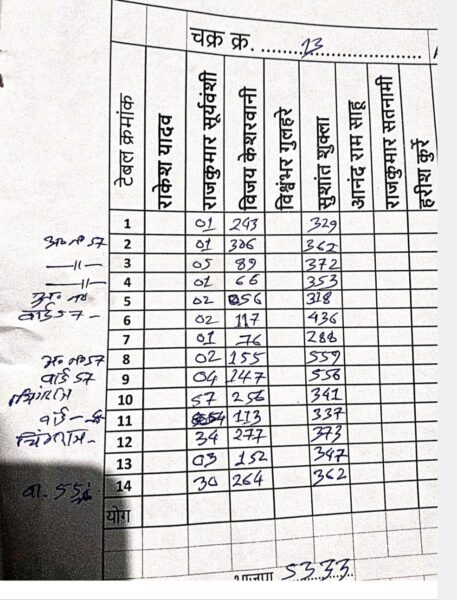 चक्र क्र. 13
टेबल क्रमांक राकेश यादव राजकुमार सूर्यवंशी विजय केशरवानी विश्वंभर गुलहरे सुशांत शुक्ला आनंद राम साहू राजकुमार सतनामी हरीश कुर्रे
1 01 243 329
57 2 01 306 362
—॥— 3 05 89 372
—॥— 4 01 66 353
5 02 056 318
वार्ड 57 - 6 02 117 436
7 01 76 288
57 8 02 155 559
वार्ड 57 9 04 147 556
10 57 256 341
11 54 113 337
12 34 277 373
13 03 152 347
वा. 55 14 30 264 362
योग
5333